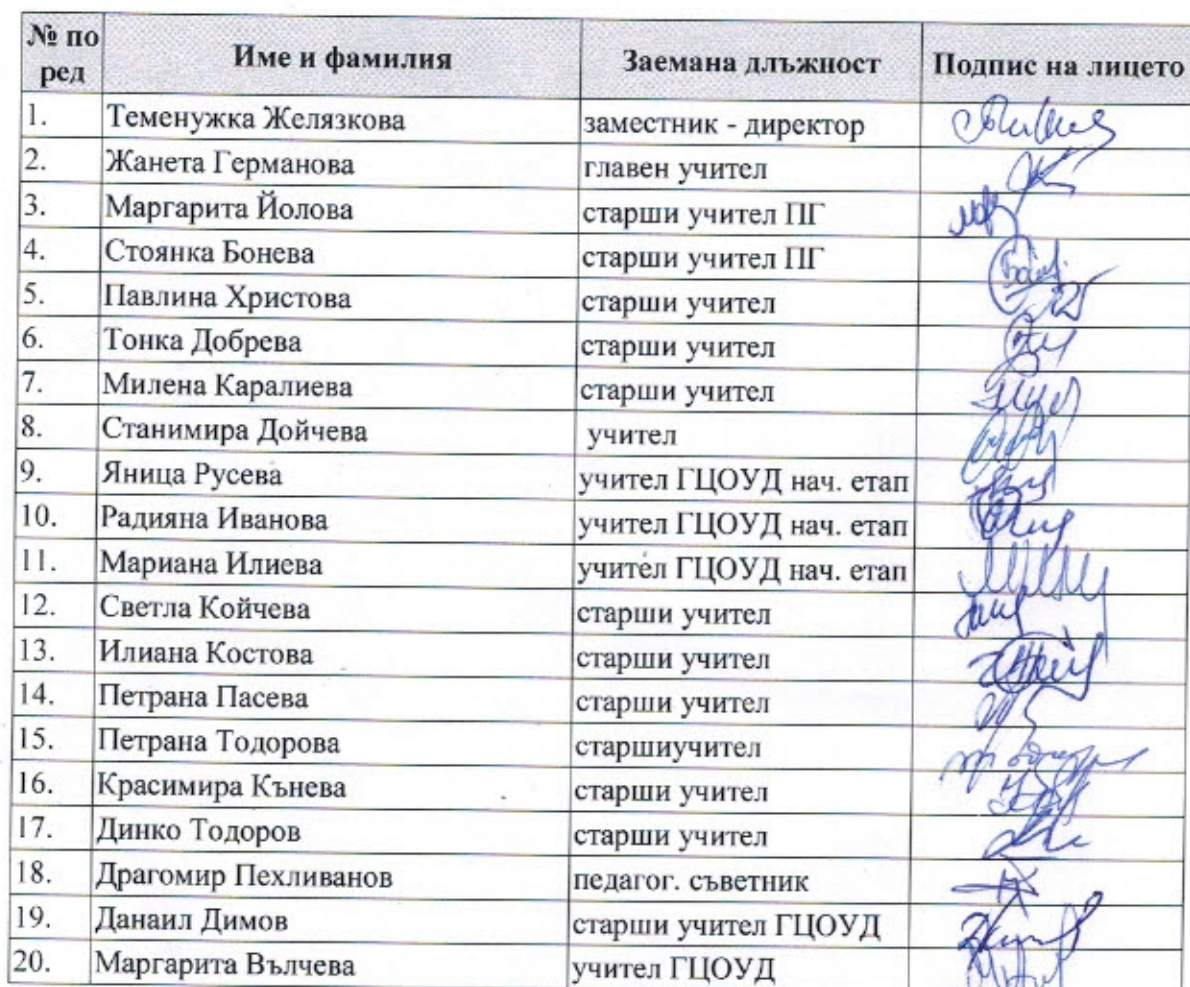 № по ред Име и фамилия Заемана длъжност Подпис на лицето
1. Теменужка Желязкова заместник - директор
2. Жанета Германова главен учител
3. Маргарита Йолова старши учител ПГ
4. Стоянка Бонева старши учител ПГ
5. Павлина Христова старши учител
6. Тонка Добрева старши учител
7. Милена Каралиева старши учител
8. Станимира Дойчева учител
9. Яница Русева учител ГЦОУД нач. етап
10. Радияна Иванова учител ГЦОУД нач. етап
11. Мариана Илиева учител ГЦОУД нач. етап
12. Светла Койчева старши учител
13. Илиана Костова старши учител
14. Петрана Пасева старши учител
15. Петрана Тодорова старшиучител
16. Красимира Кънева старши учител
17. Динко Тодоров старши учител
18. Драгомир Пехливанов педагог. съветник
19. Данаил Димов старши учител ГЦОУД
20. Маргарита Вълчева учител ГЦОУД